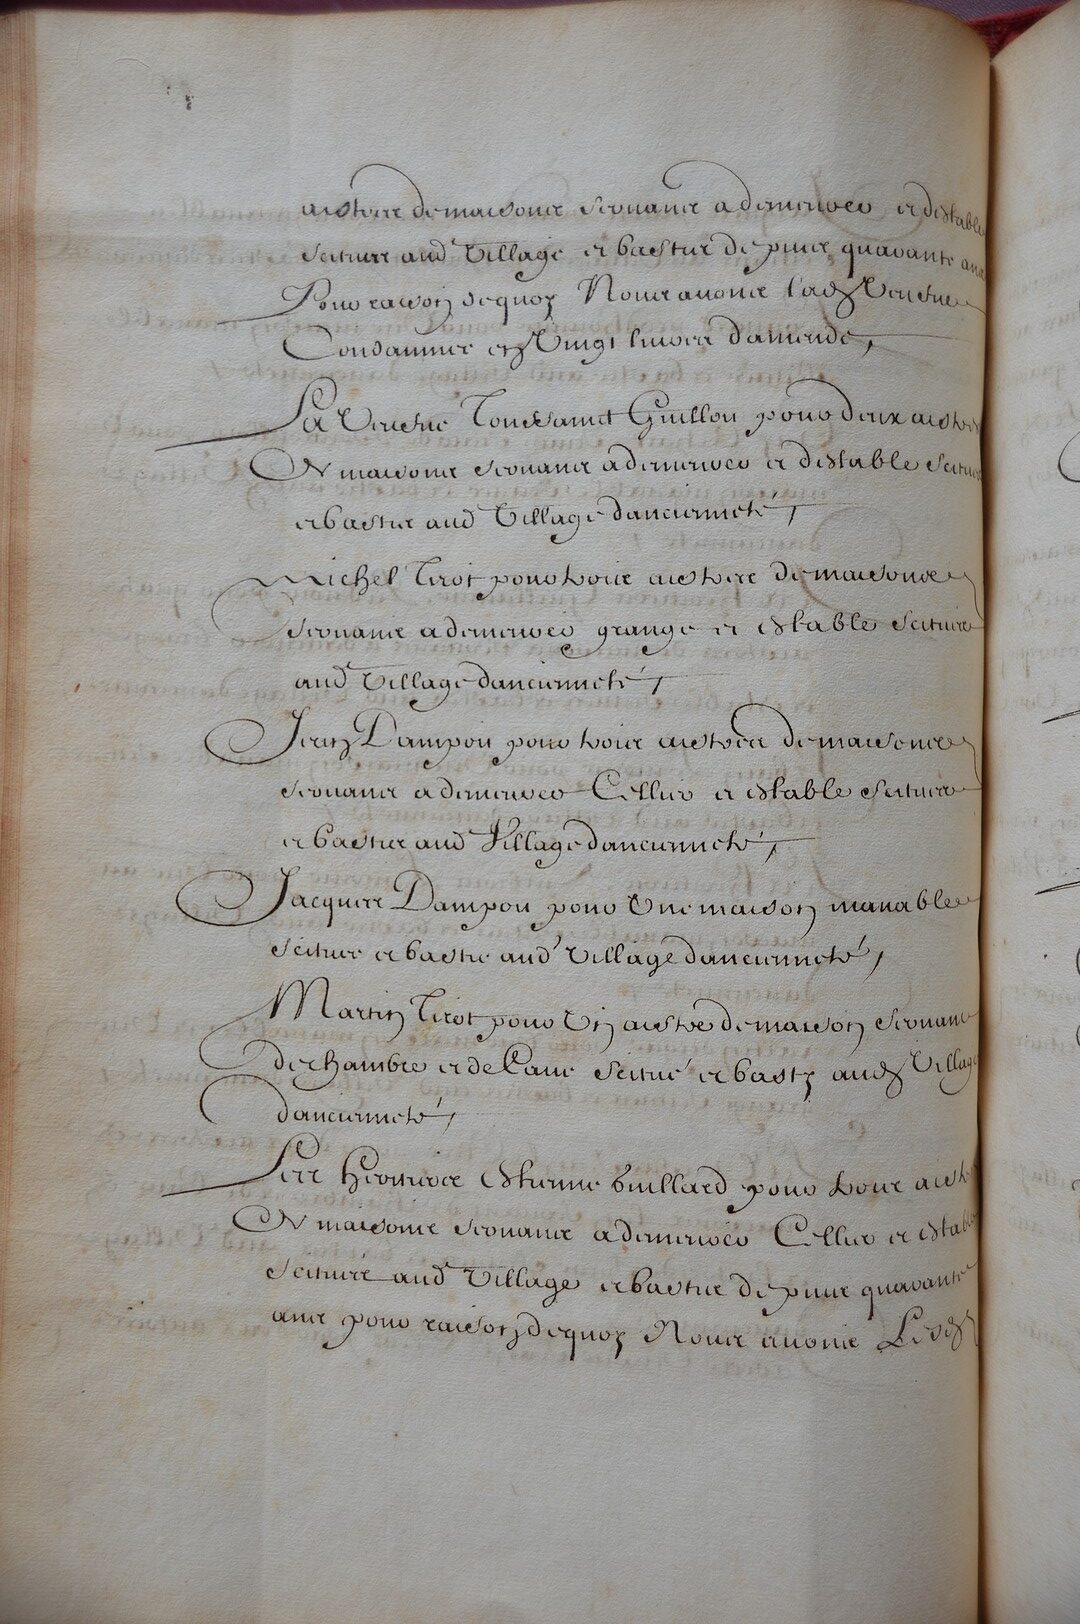 aistres de maisons servans a demeurer et destable
scituez aud Village et bastis depuis quarante ans
Pour raison dequoy Nous avons lad Veufve
Condamnee en Vingt livres d'amende,
La Veufve Toussainct Guillou pour deux aistres
De maisons servans a demeurer et destable scituez
et bastis aud Village d'ancienneté,
Michel Tirot pour trois aistres de maisons
servans a demeurer grange et estable scituez
aud Village d'ancienneté,
Jean Dampou pour trois aistres de maisons
servans a demeurer Cellier et estable scituez
et bastis aud Village d'ancienneté,
Jacques Dampou pour Une maison manable
scituee et bastie aud Village d'ancienneté,
Martin Tirot pour Un aistre de maison servant
de chambre et de Cave scitué et basty aud Village
d'ancienneté,
Les Heritiers Estienne buillard pour trois aistres
De maisons servans a demeurer Cellier et estable
scituez aud Village et bastis depuis quarante
ans pour raison dequoy Nous avons Lesd